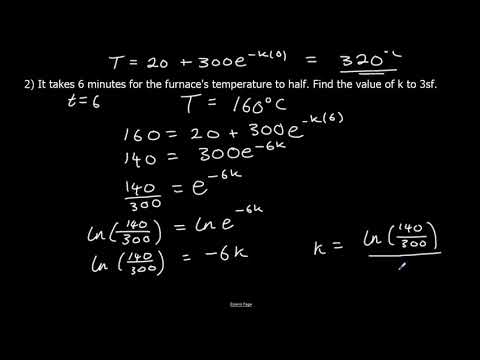 T = 20 + 300e^{-k(0)} = 320°C
2) It takes 6 minutes for the furnace's temperature to half. Find the value of k to 3sf.
t = 6 T = 160°C
160 = 20 + 300e^{-k(6)}
140 = 300e^{-6k}
140/300 = e^{-6k}
ln(140/300) = ln e^{-6k}
ln(140/300) = -6k k = ln(140/300)